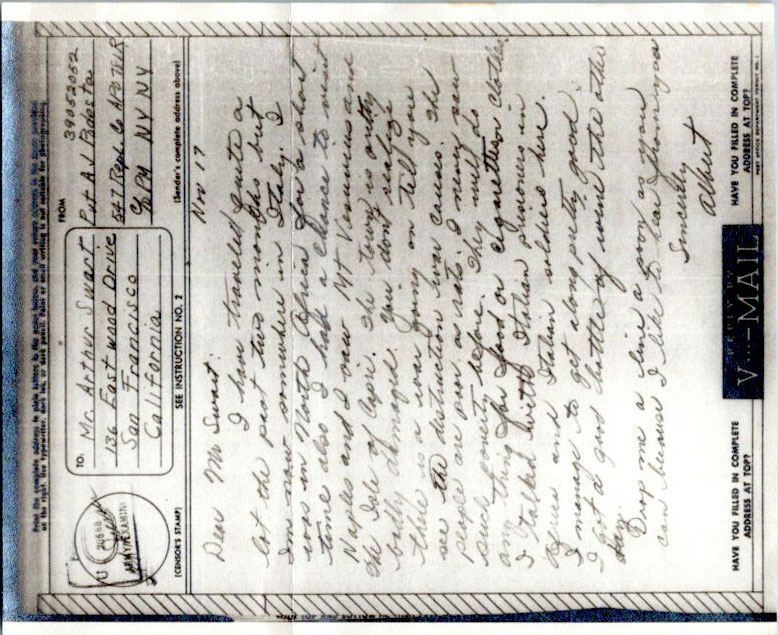 Print the complete address in plain letters in the panel below, and your return address in the space provided
on the right. Use typewriter, dark ink, or dark pencil. Faint or small writing is not suitable for photographing.
FROM
TO.
Mr. Arthur Swart
136 Eastwood Drive
San Francisco
California
39052052
Pvt A J Podesta
547 Repl. Co APO
% PM NY NY
(CENSOR'S STAMP)
SEE INSTRUCTION NO. 2
(Sender's complete address above)
ARMY EXAMINER
Nov 17
Dear Mr Swart:
I have traveled quite a
lot the past two months but
I'm now somewhere in Italy. I
was in North Africa for a short
time also I had a chance to visit
Naples and I saw Mt Vesuvius and
the Isle of Capri. The town is pretty
badly damaged. You don't realize
there is a war going on till you
see the destruction war causes. The
people are poor as rats. I never saw
such poverty before. They will do
any thing for food or cigarettes or clothes.
I talked with Italian prisoners in
Africa and Italian soldiers here.
I manage to get along pretty good.
I got a good bottle of wine the other
day.
Drop me a line a soon as you
can because I like to hear from you
Sincerely
Albert
HAVE YOU FILLED IN COMPLETE
ADDRESS AT TOP?
V···–MAIL
HAVE YOU FILLED IN COMPLETE
ADDRESS AT TOP?
POST OFFICE DEPARTMENT PERMIT NO.